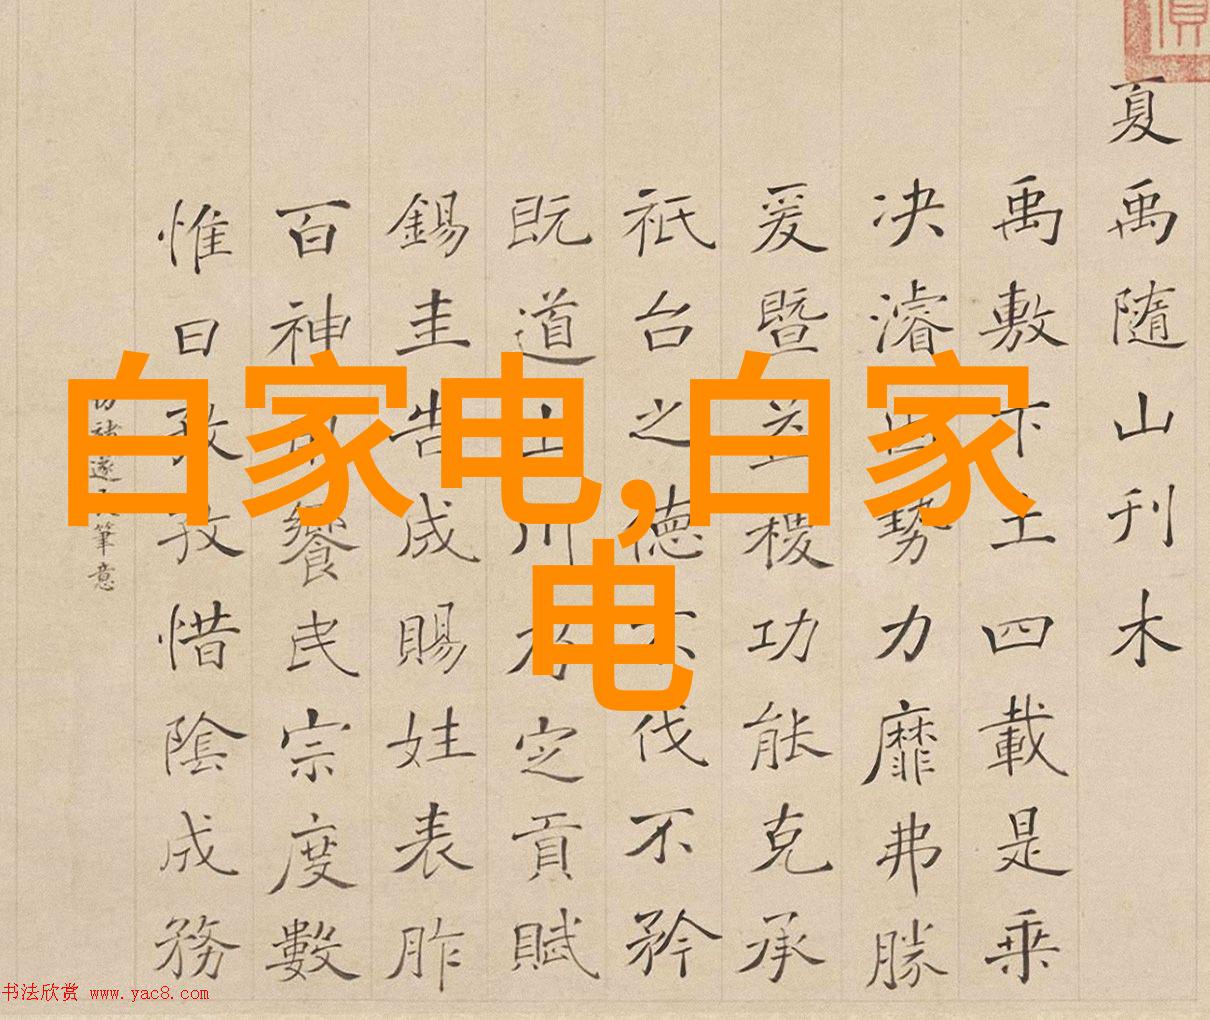 白家电,白家
电
夏禹隨山刊木
禹敷下土四載是乘
决濬勢力靡弗勝
爰暨益稷功能克承
祇台之德不伐不矜
既道山川乃定貢賦
錫圭告成賜娃表胙
百神饗民宗度數
惟日孜孜惜陰成務
褚遂良筆意
书法欣赏 www.yac8.com